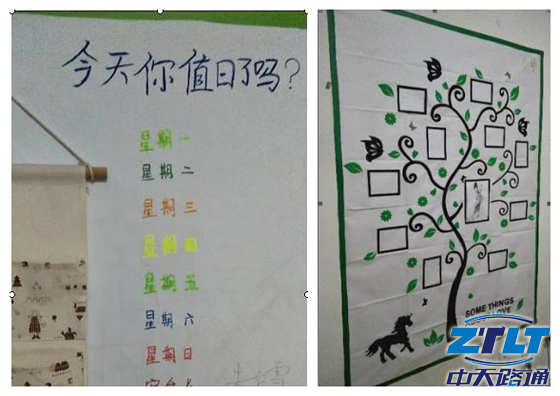 今天你值日了吗?
星期一
星期二
星期三
星期四
星期五
星期六
星期日
SOME THINGS
ZTLT
中天路通